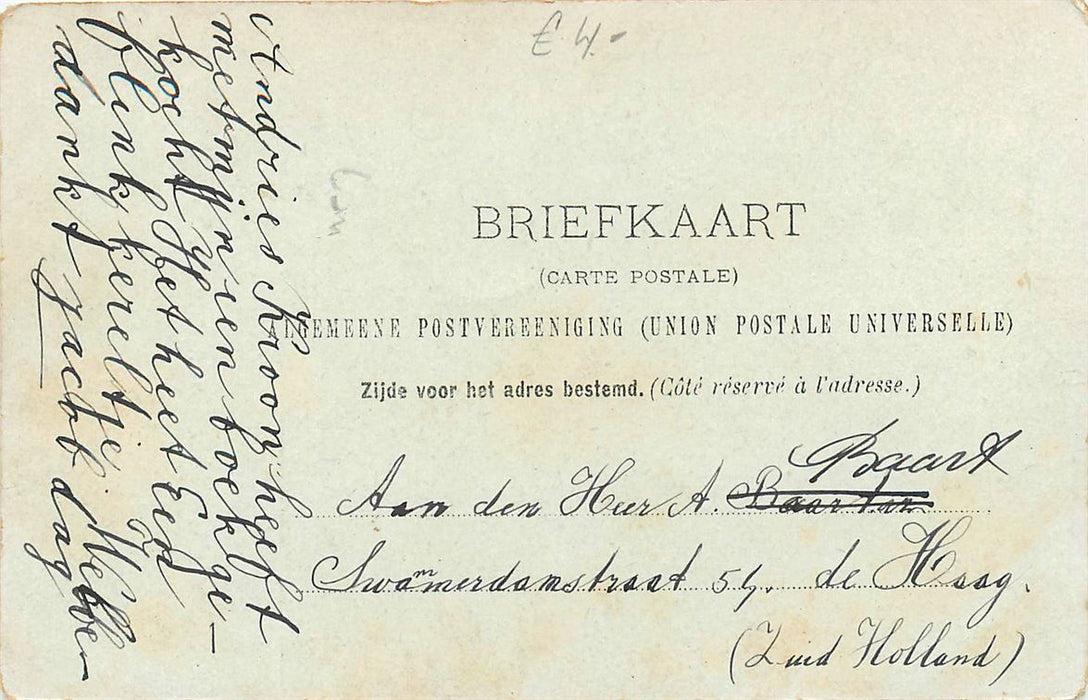 £ 4.-
BRIEFKAART
(CARTE POSTALE)
ALGEMEENE POSTVEREENIGING (UNION POSTALE UNIVERSELLE)
Zijde voor het adres bestemd. (Côté réservé à l'adresse.)
Aan den Heer A. Baart
Swammerdamstraat 54. de Haag.
(Zuid Holland)
Andries Kroon heeft
met mijn ien boekl ge-
kocht Het heet Een
flink kereltje Hebbe
dankt Jacob dag